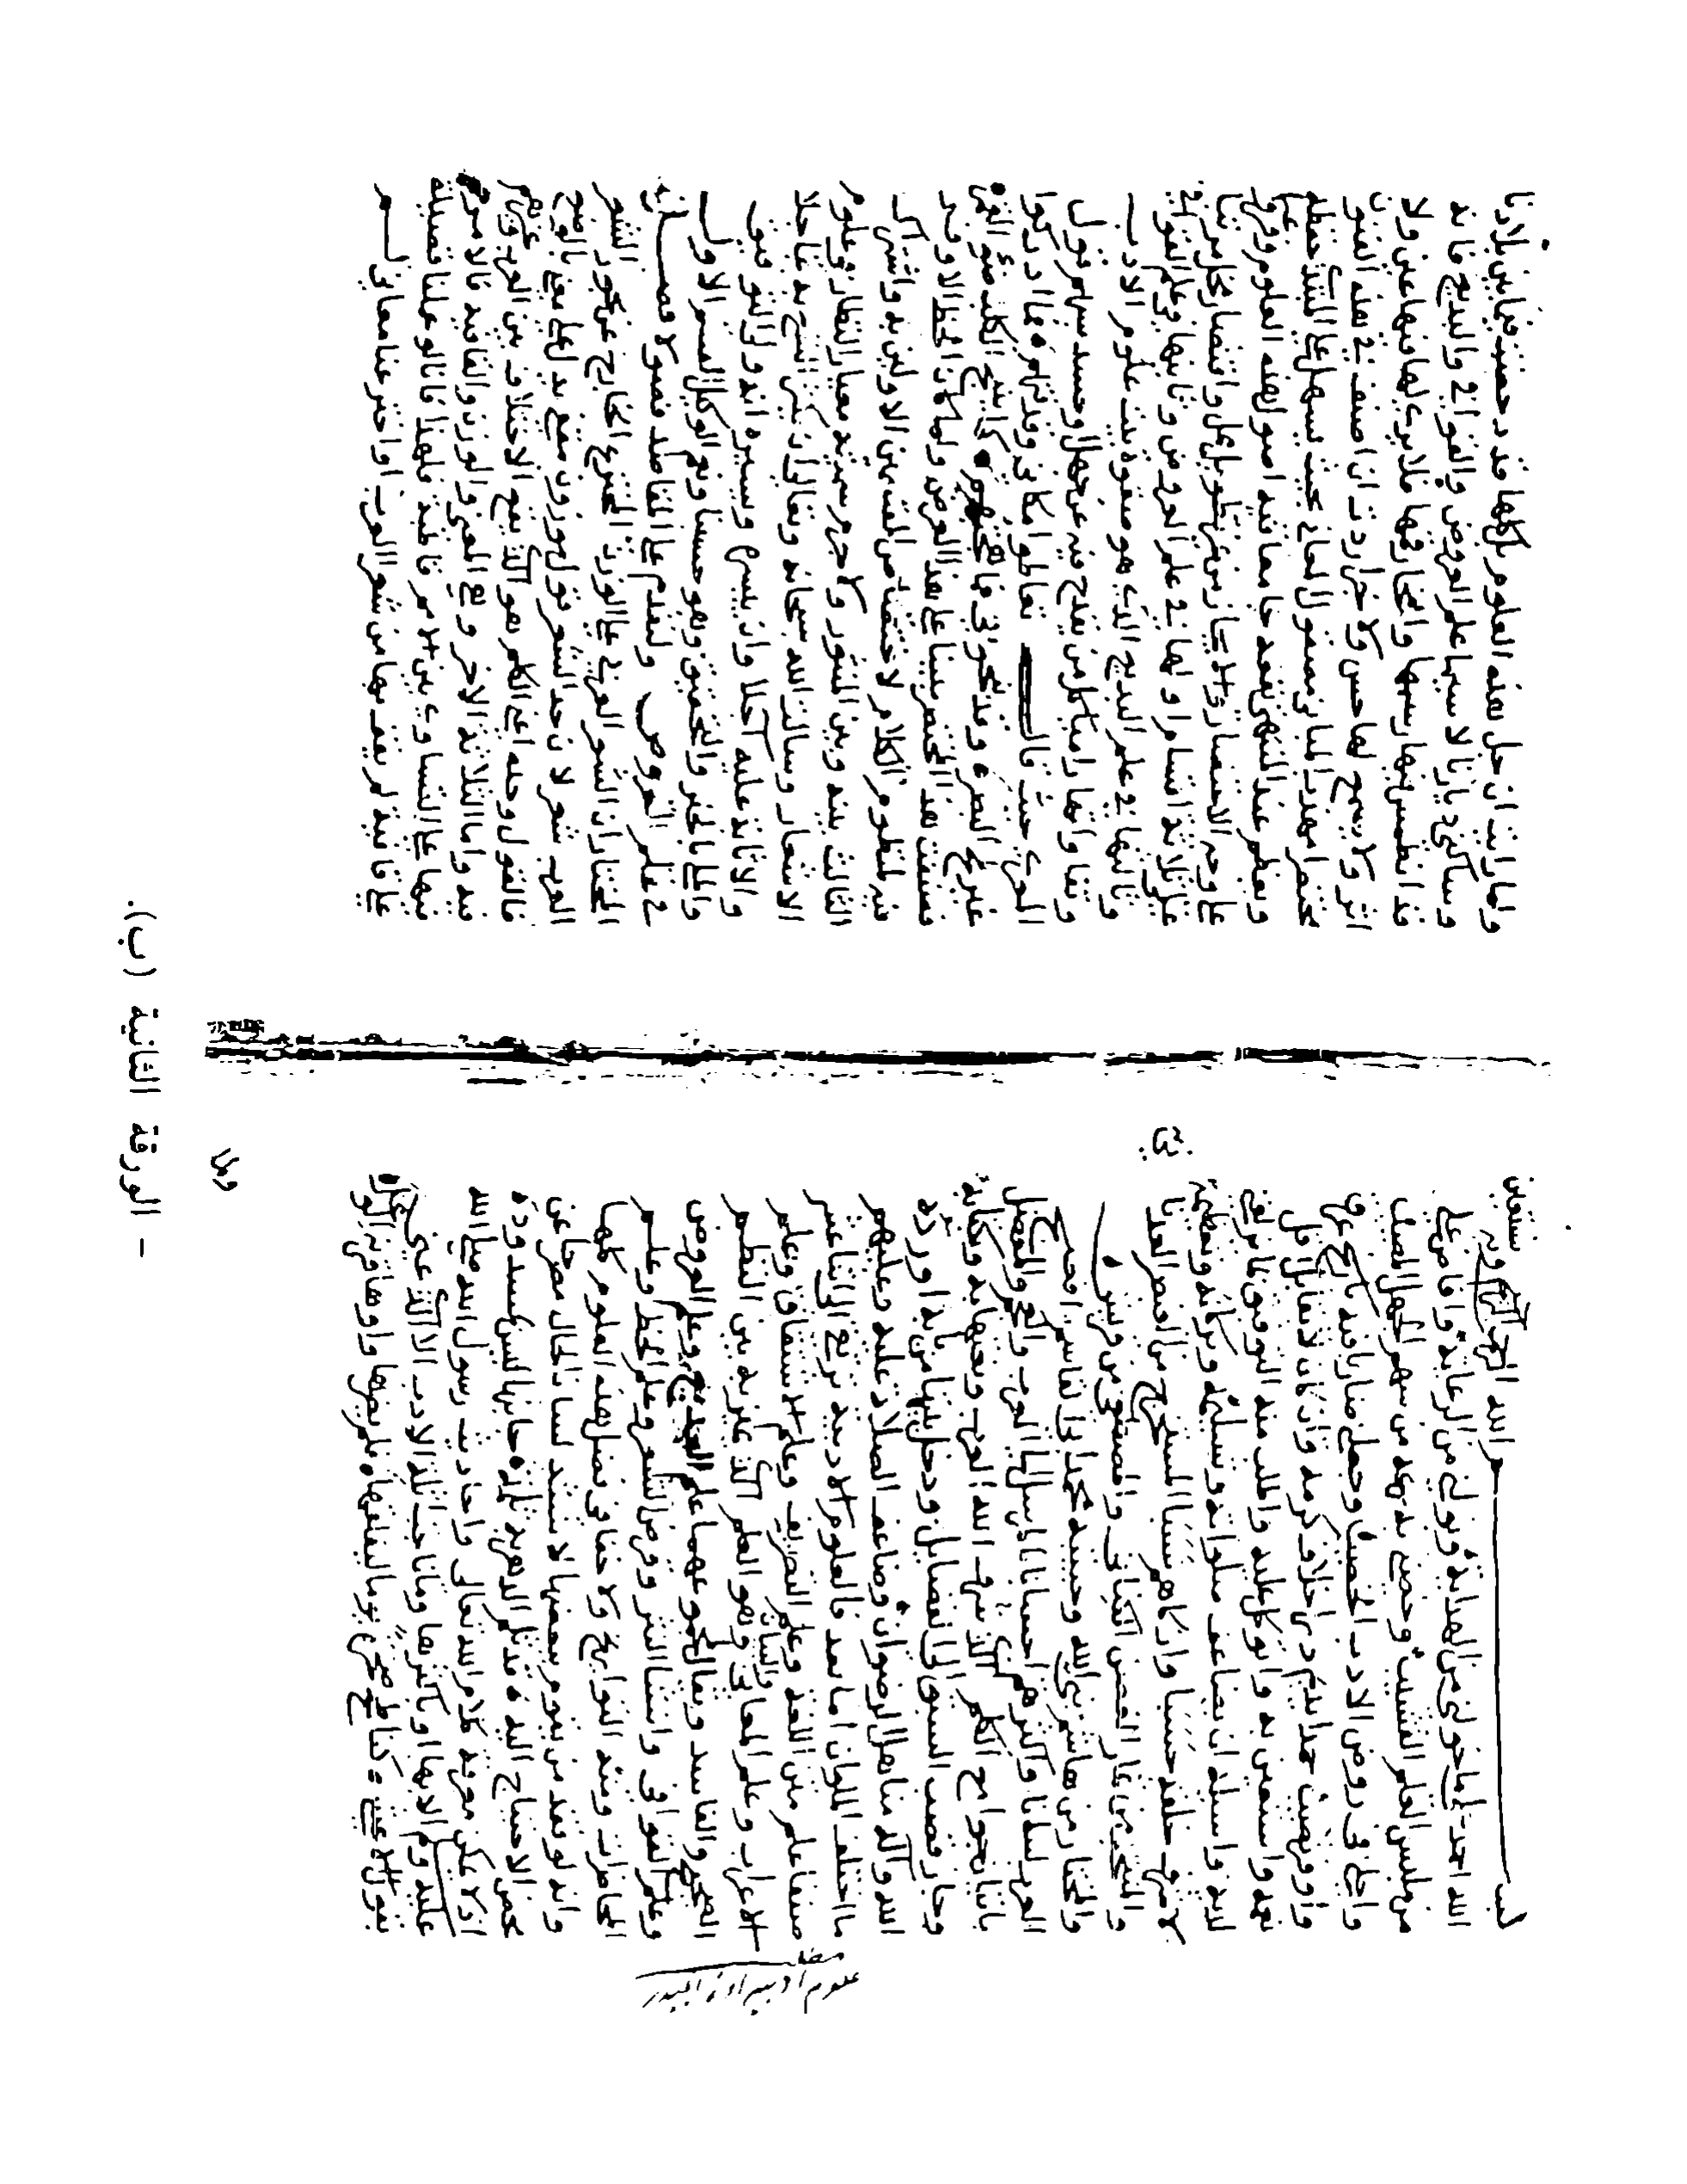 بسم الله الرحمن الرحيم وبه نستعين
الله احمد على ما خولني من الهداية ونولني من الرعاية وافاض علي
من ملبس العلم القشيب
واحلني في روض الادب الخصيب وجعلني
اخلاف كرمه وان كان لا يقابل اقل
نعمه واستعين به واتوكل عليه واطلب منه التوفيق لما يزلف
لديه واسئله ان يضاعف صلواته وتسليمه وبركاته وتعظيمه
لاشرف خلقه حسبا وازكاهم نسبا المستخرج من العنصر العدنا
والمنتخب من نجار الغصن الكناني والمصطفى من قريش
والمختار من هاشم نبي الله وحبيبه محمد ابي القاسم افصح
العرب لسانا واكثرهم احسانا المرسل الى العرب والعجم والمفضل
جوامع الكلم الذي شرف الله العرب
وحاز قصب السبق الى الفضايل ودخل بيتها من بابه اورده
الله واله مناهل الرضوان وضاعف الصلاة عليه وعليهم
ما اختلف الملوان اما بعد فالعلوم الادبية ترتقي الى اثنا عشر
صنفا علم متن اللغة وعلم التصريف وعلم الاشتقاق وعلم
الاعراب وعلم المعاني والبيان وهو العلم الذي يميز به بين النظم
الصحيح والفاسد ويقال لمجموعهما علم البديع وعلم العروض
وعلم القوافي وانشا النثر وقرض الشعر وعلم الخط وعلم
المحاضرات ومنه التواريخ ولا خفا في فضل هذه العلوم كلها
وانه لو من يقوم ببعضها لسان الحال مفصحا عن
محض الاحتياج اليه
اذ لا يمكن معرفة كلام الله تعالى واحاديث رسول الله صلى الله
عليه وسلم الا بها او باكثرها
بقول الاعشى كناطح صخرة يوما ليفلقها فلم يضرها واوهى قرنه الوعل
ولما
ولما رايت ان جل هذه العلوم بل كلها قد درست فيما بين بلادنا
وساكني ديارنا لاسيما علم العروض والقوافي والبديع فانه
قد انطمس فيها رسمها وانمحا رقمها فلا يرى لها فيها عين ولا
اثر ولا يسمع لها حس ولا خبر اردت ان اصنف في هذه الفنون
مختصرا مهذب المباني مصقول المعاني بحيث يسهل على المبتدي حفظه
ويعظم عند المنتهي نفعه جامعا فيه اصول هذه العلوم وفروعها
على وجه الاختصار والايجاز من غير تطويل ممل واقتصار مخل مرتبا
على ثلاثة اقسام اولها في علم العروض وثانيها في علم القوافي
وثالثها في علم البديع الذي هو صفوة بيت علوم الادب
راميا كل من يقدح فيه عن جهل او حسد بسهم قول
المعري حيث قال تعاطوا مكاني وقد فتهم فما ادركوا
غير لمح البصر وقد نبحوني وما هجتهم كما ينبح الكلب ضوء القمر
فصنفت هذا المختصر مبنيا على هذا الغرض ولما كان الحظ الاوفر
فيه لمنظوم الكلام لاختصاص القسمين الاولين به واشتراك
الثالث بينه وبين المنثور ولا جرم سميته معيار النظار في علوم
الاشعار وسالت الله سبحانه وتعالى ان يكثر النفع به عاجلا
والاثابة عليه اجلا وان انه ولي التوفيق
والملي بالخير والتحقيق وهو حسبنا ونعم الوكيل القسم الاول
في علم العروض ولنقدم على المقاصد فصولا فصل في ان
المختار ان الشعر العربي على الوزن المخترع الخارج عن بحور الشعر
العرب شعر حد الشعر قول موزون مقفى يدل على معنى بالوضع
فالقول وحده اعني الكلم هو الذي يقع الاختلاف بين العرب وغيرهم
فيه واما الثلاثة الاخر وهي المعنى والوزن والقافية فالامر
فيها على التساوي بين الامم قاطبة قصيدة
على قافية لم بها من شعر العرب او اخترعنا معاني لم
- الورقة الثانية (ب).